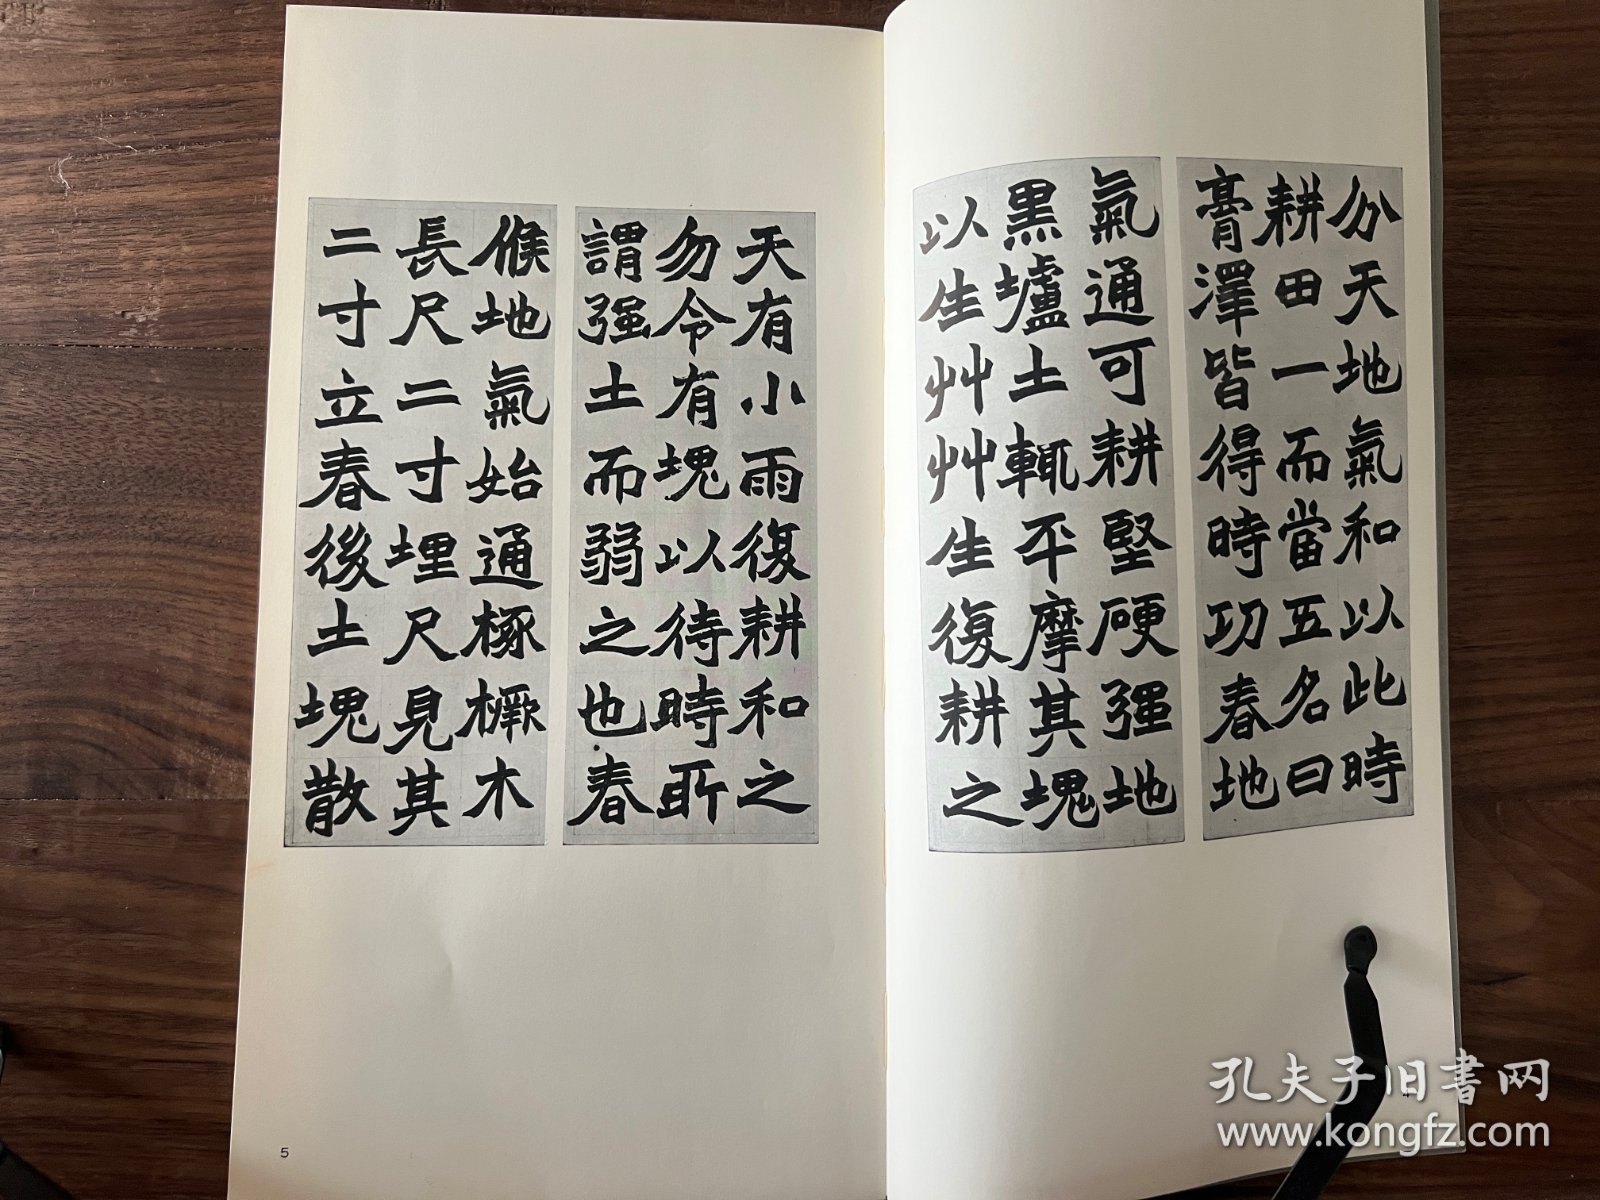 分天地氣和以此時
耕田一而當五名曰
膏澤皆得時功春地
氣通可耕堅硬强地
黑壚土輒平摩其塊
以生艸艸生復耕之
天有小雨復耕和之
勿令有塊以待時所
謂强土而弱之也春
候地氣始通椓橛木
長尺二寸埋尺見其
二寸立春後土塊散
4
5
孔夫子旧书网
www.kongfz.com